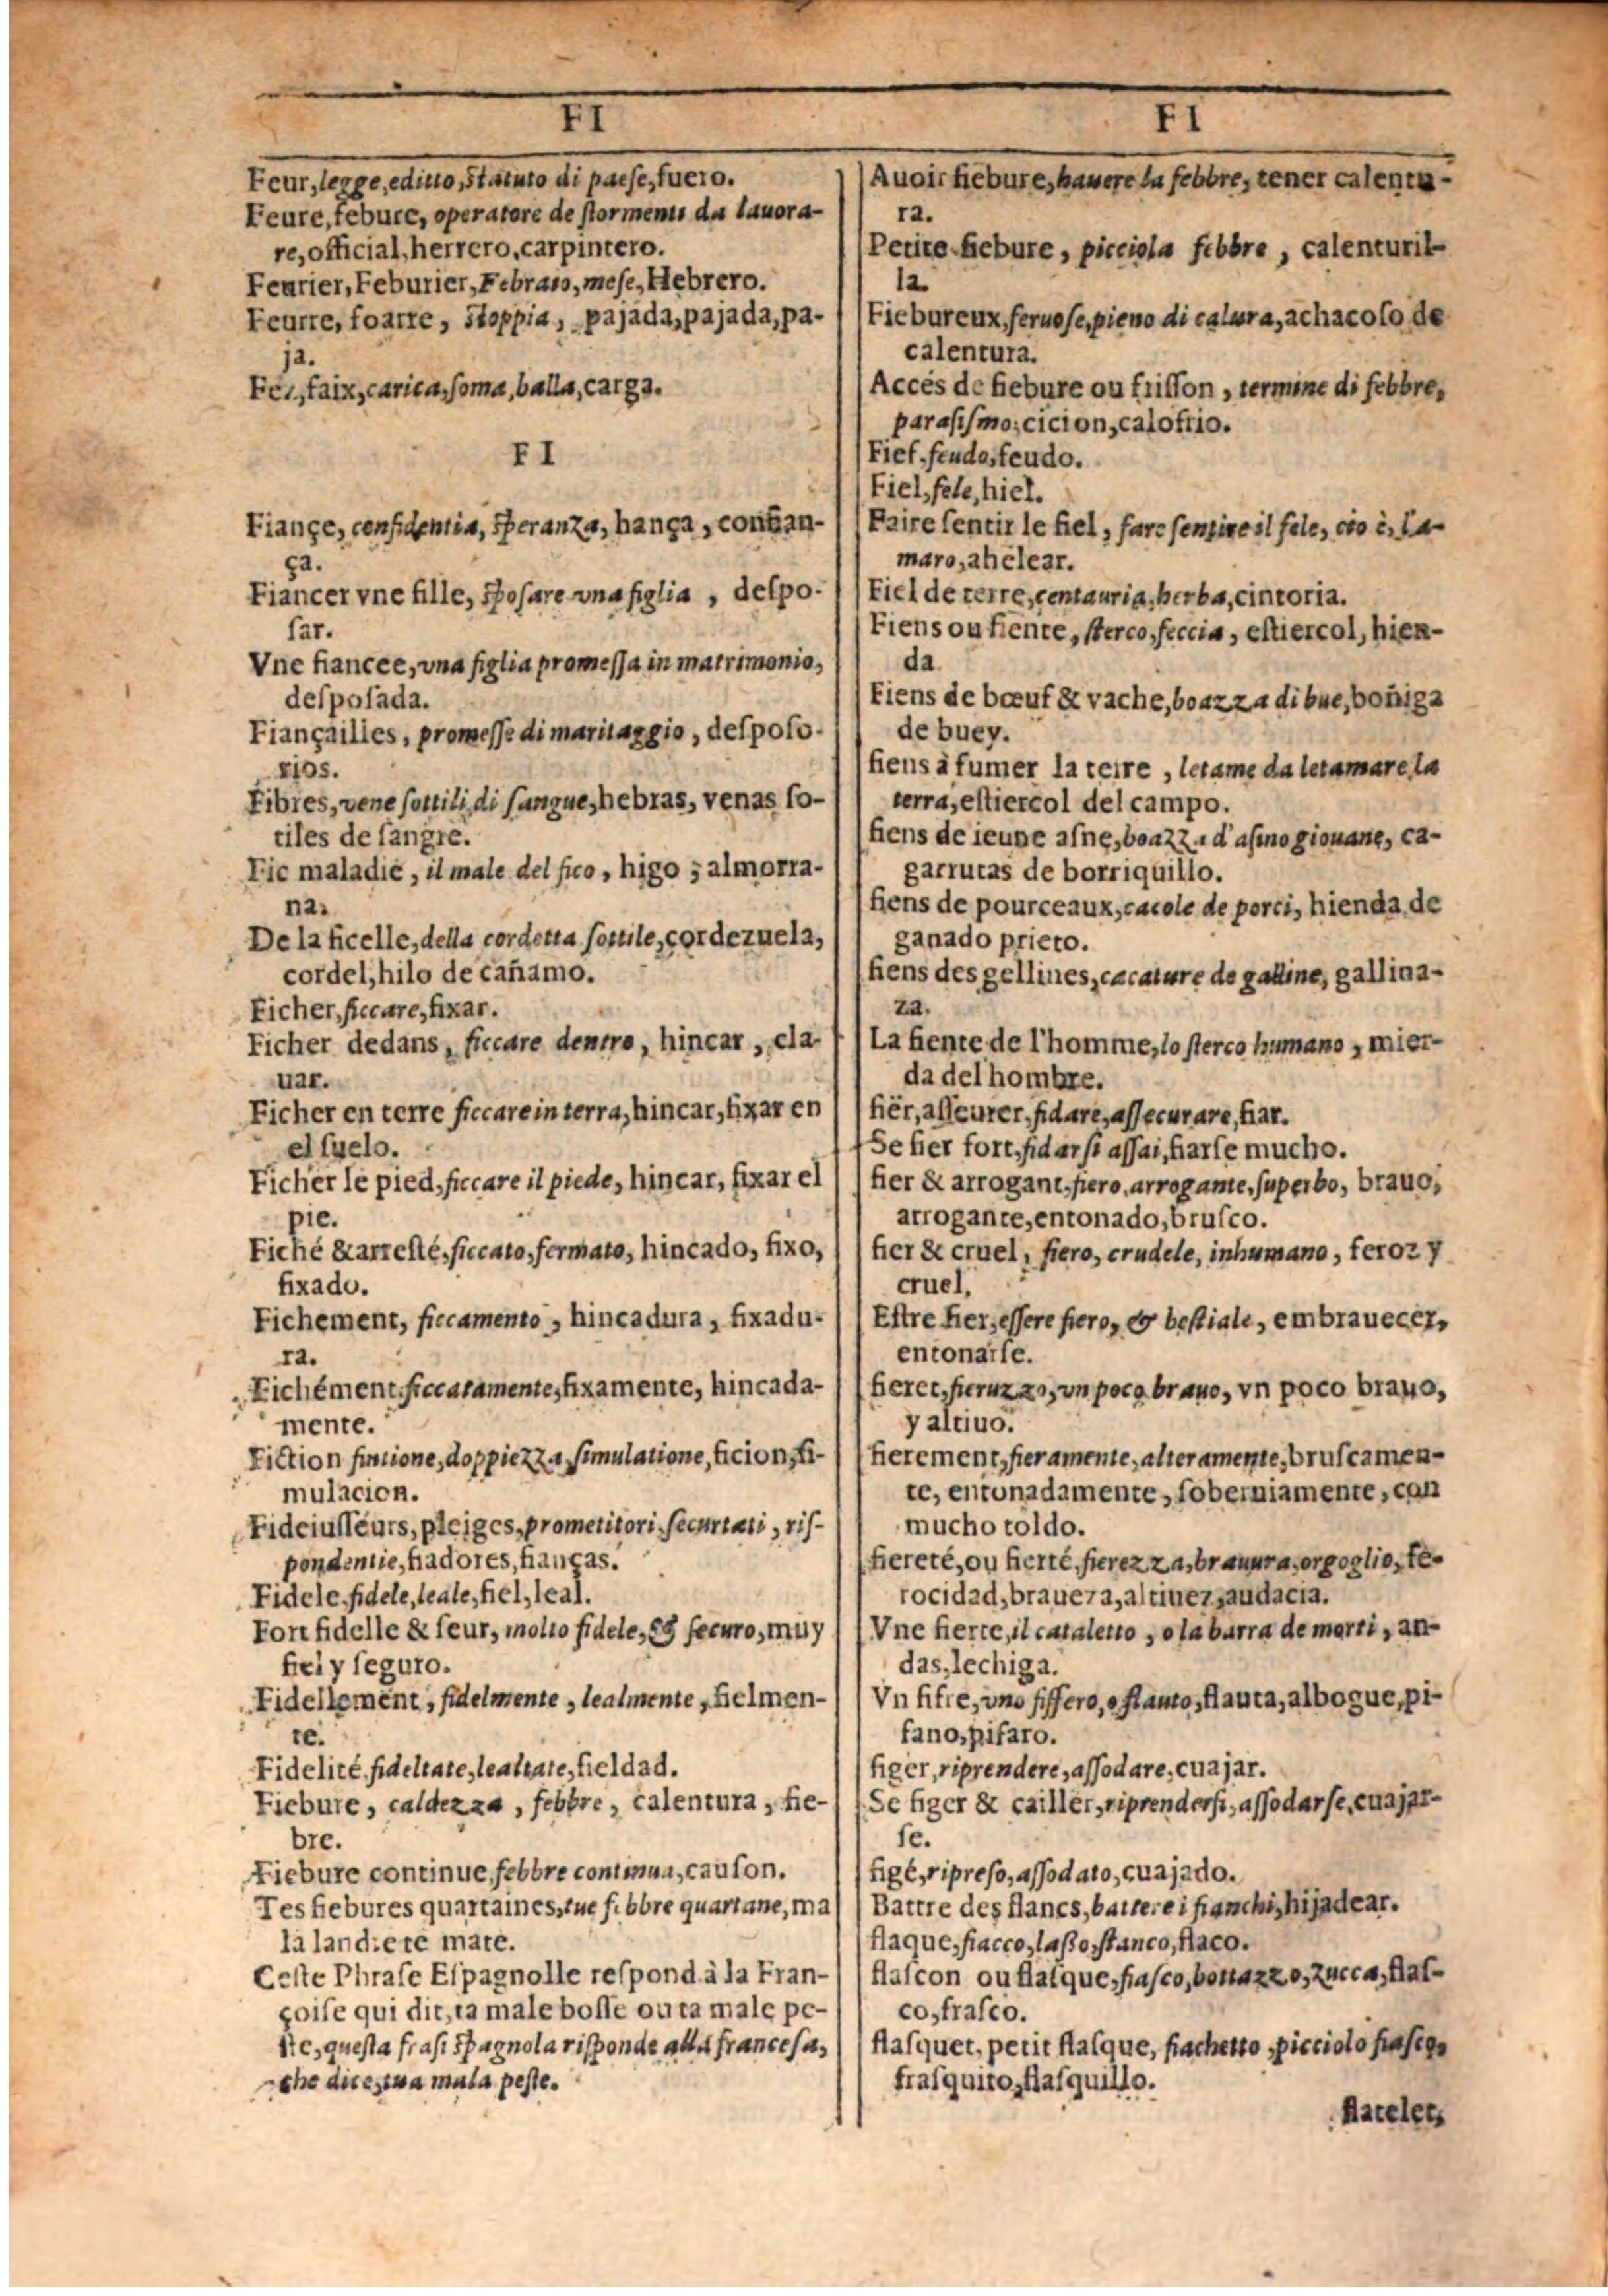 FI
Feur, legge, editto, statuto di paese, fuero.
Feure, febure, operatore de stormenti da lauora-
re, official, herrero, carpintero.
Feurier, Feburier, Febraio, mese, Hebrero.
Feurre, foarre, stoppia, pajada, pajada, pa-
ja.
Fez, faix, carica, soma, balla, carga.
FI
Fiançe, confidentia, speranza, hança, confian-
ça.
Fiancer vne fille, sposare vna figlia, despo-
sar.
Vne fiancee, vna figlia promessa in matrimonio,
desposada.
Fiançailles, promesse di maritaggio, desposo-
rios.
Fibres, vene sottili di sangue, hebras, venas so-
tiles de sangre.
Fic maladie, il male del fico, higo; almorra-
na.
De la ficelle, della cordetta sottile, cordezuela,
cordel, hilo de cañamo.
Ficher, ficcare, fixar.
Ficher dedans, ficcare dentro, hincar, cla-
uar.
Ficher en terre ficcare in terra, hincar, fixar en
el suelo.
Ficher le pied, ficcare il piede, hincar, fixar el
pie.
Fiché & arresté, ficcato, fermato, hincado, fixo,
fixado.
Fichement, ficcamento, hincadura, fixadu-
ra.
Fichément ficcatamente, fixamente, hincada-
mente.
Fiction fintione, doppiezza, simulatione, ficion, si-
mulacion.
Fideiusseurs, pleiges, prometitori, securtati, ris-
pondentie, fiadores, fianças.
Fidele, fidele, leale, fiel, leal.
Fort fidelle & seur, molto fidele, & securo, muy
fiel y seguro.
Fidellement, fidelmente, lealmente, fielmen-
te.
Fidelité fideltate, lealtate, fieldad.
Fiebure, caldezza, febbre, calentura, fie-
bre.
Fiebure continue, febbre continua, causon.
Tes fiebures quartaines, tue febbre quartane, ma
la landre te mate.
Ceste Phrase Espagnolle respond à la Fran-
çoise qui dit, ta male bosse ou ta male pe-
ste, questa frasi spagnola risponde alla francesa,
che dice, tua mala peste.
FI
Auoir fiebure, hauere la febbre, tener calentu-
ra.
Petite fiebure, picciola febbre, calenturil-
la.
Fiebureux, feruose, pieno di calura, achacoso de
calentura.
Accés de fiebure ou frisson, termine di febbre,
parasismo, cicion, calofrio.
Fief, feudo, feudo.
Fiel, fele, hiel.
Faire sentir le fiel, fare sentire il fele, cio è, l'a-
maro, ahelear.
Fiel de terre, centauria, herba, cintoria.
Fiens ou fiente, sterco, feccia, estiercol, hien-
da.
Fiens de bœuf & vache, boazza di bue, boñiga
de buey.
fiens à fumer la terre, letame da letamare la
terra, estiercol del campo.
fiens de ieune asne, boazza d'asino giouane, ca-
garrutas de borriquillo.
fiens de pourceaux, cacole de porci, hienda de
ganado prieto.
fiens des gellines, cacature de galline, gallina-
za.
La fiente de l'homme, lo sterco humano, mier-
da del hombre.
fiër, asseurer, fidare, assecurare, fiar.
Se fier fort, fidarsi assai, fiarse mucho.
fier & arrogant, fiero, arrogante, superbo, brauo,
arrogante, entonado, brusco.
fier & cruel, fiero, crudele, inhumano, feroz y
cruel,
Estre fier, essere fiero, & bestiale, embrauecer,
entonarse.
fieret, fieruzzo, vn poco brauo, vn poco brauo,
y altiuo.
fierement, fieramente, alteramente, bruscamen-
te, entonadamente, soberuiamente, con
mucho toldo.
fiereté, ou fierté, fierezza, brauura, orgoglio, fe-
rocidad, braueza, altiuez, audacia.
Vne fierte, il cataletto, o la barra de morti, an-
das, lechiga.
Vn fifre, vno fiffero, o flauto, flauta, albogue, pi-
fano, pifaro.
figer, riprendere, assodare, cuajar.
Se figer & cailler, riprendersi, assodarse, cuajar-
se.
figé, ripreso, assodato, cuajado.
Battre des flancs, battere i fianchi, hijadear.
flaque, fiacco, lasso, stanco, flaco.
flascon ou flasque, fiasco, bottazzo, zucca, flas-
co, frasco.
flasquet, petit flasque, fiachetto, picciolo fiasco,
frasquito, flasquillo.
flatelet,